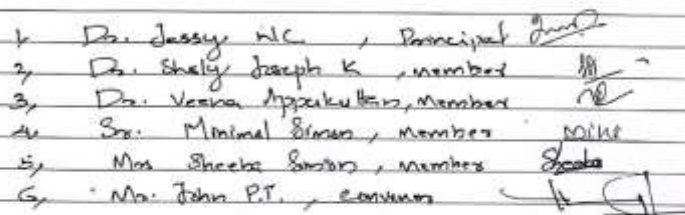 1, Dr. Jessy N.C. , Principal
2, Dr. Shaly Joseph K , member
3, Dr. Veena Appukuttan, Member
4. Sr. Minimol Simon , member Mini
5, Mrs Sheeba Simon , member Sheeba
6, Mr. John P.T. , convenor